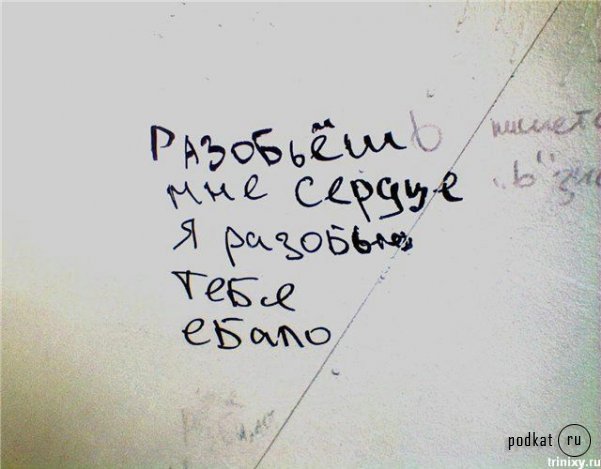 РАЗОБЬЁШЬ
мне сердце
я разобью
тебе
ебало
"ь"
podkat ru
trinixy.ru